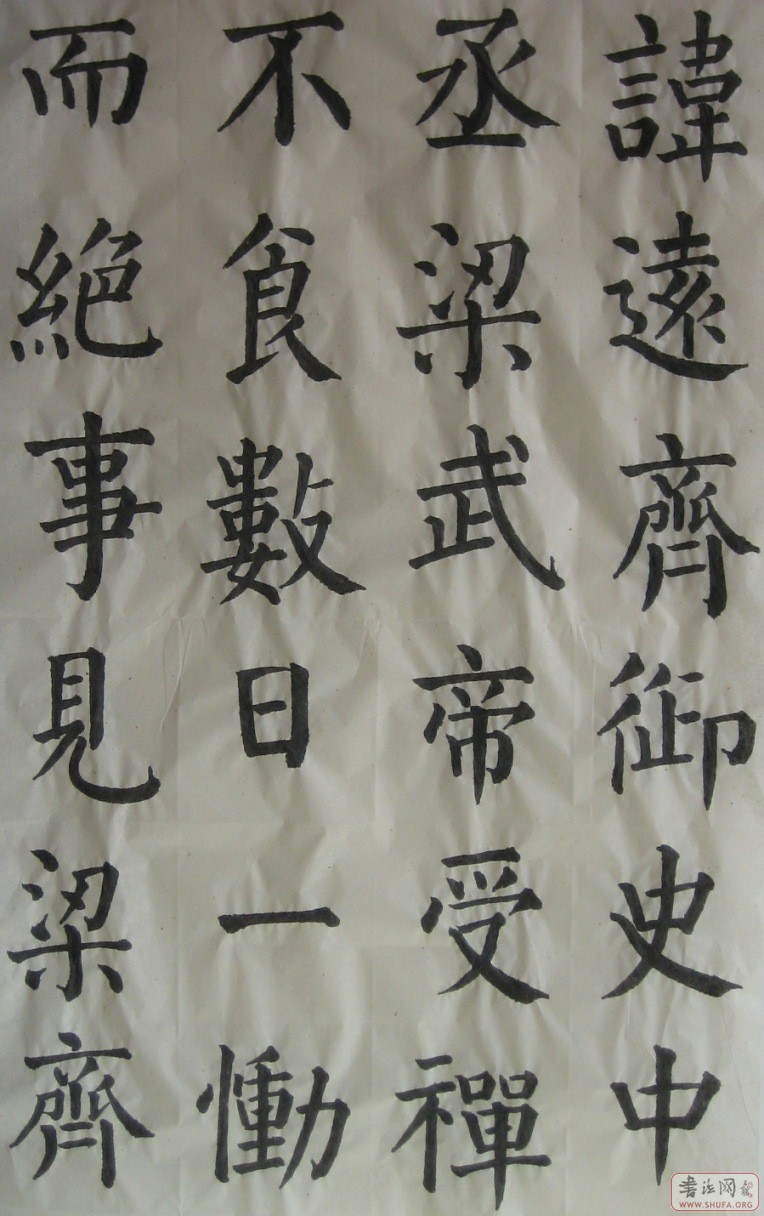 諱遠齊御史中
丞梁武帝受禪
不食數日一慟
而絶事見梁齊
书法网
WWW.SHUFA.ORG